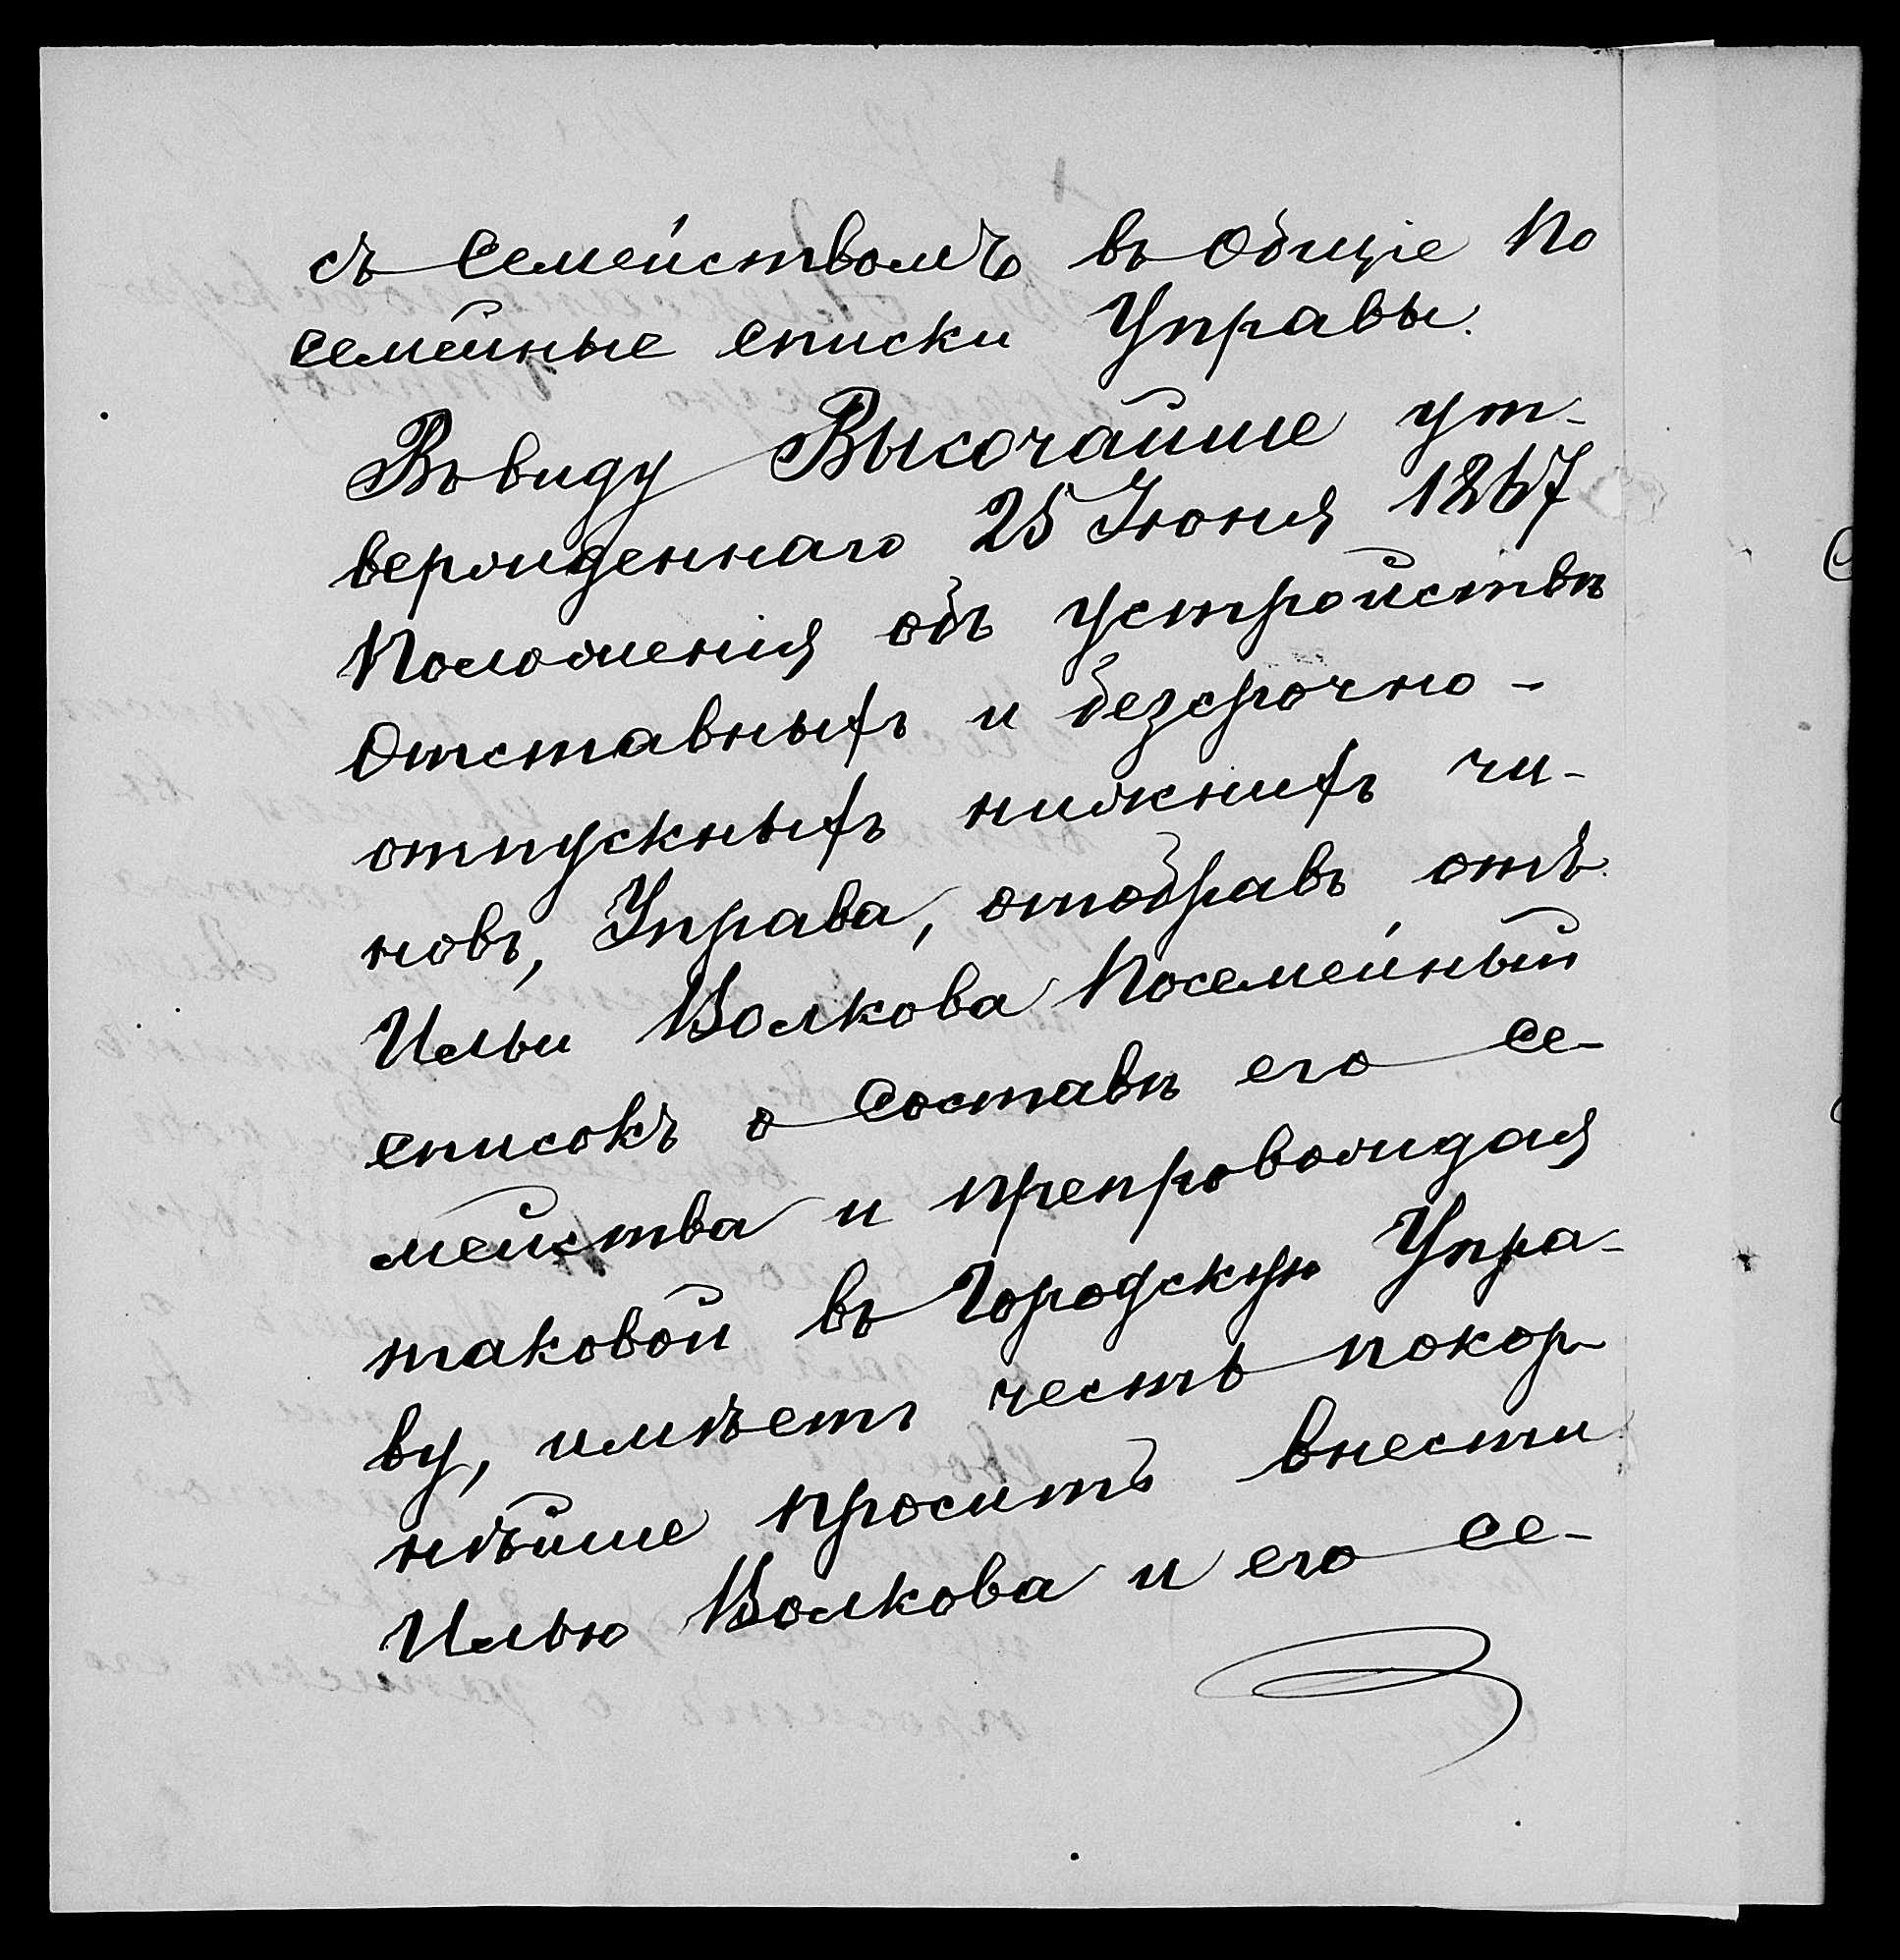 съ семействомъ въ общіе По
семейные списки Управы.
Въ виду Высочайше ут-
вержденнаго 25 Іюня 1867
Положенія объ устройствѣ
отставныхъ и безсрочно-
отпускныхъ нижнихъ чи-
новъ, Управа, отобравъ отъ
Ильи Волкова Посемейный
списокъ о составѣ его се-
мейства и препровождая
таковой въ Городскую Упра-
ву, имѣетъ честь покор-
нѣйше просить внести
Илью Волкова и его се-